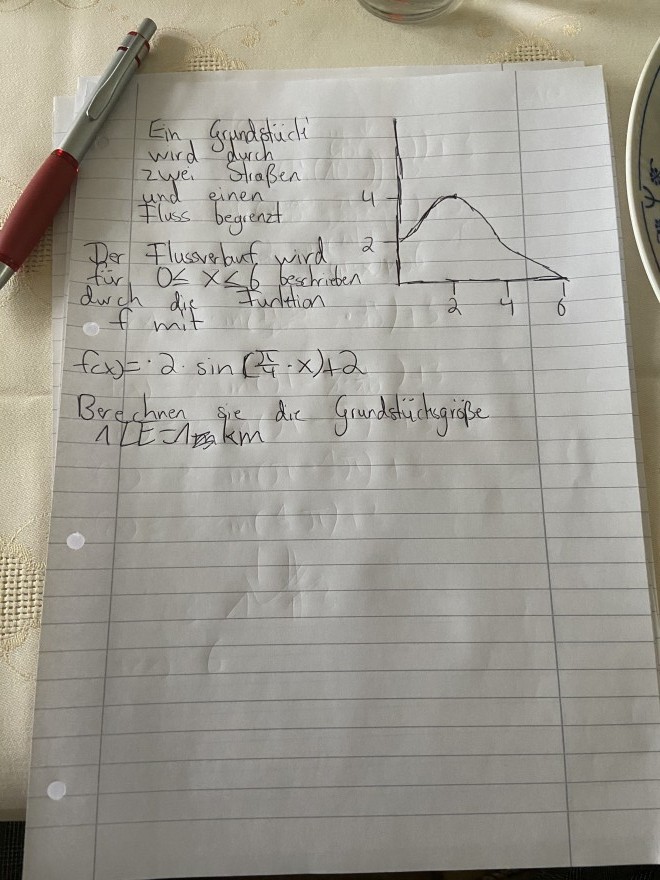 Ein Grundstück
wird durch
zwei Straßen
und einen
Fluss begrenzt
Der Flussverlauf wird
für 0≤ x≤6 beschrieben
durch die Funktion
f mit
f(x)=·2·sin(π/4·x)+2
Berechnen sie die Grundstücksgröße
1 LE=1 km
4
2
2 4 6